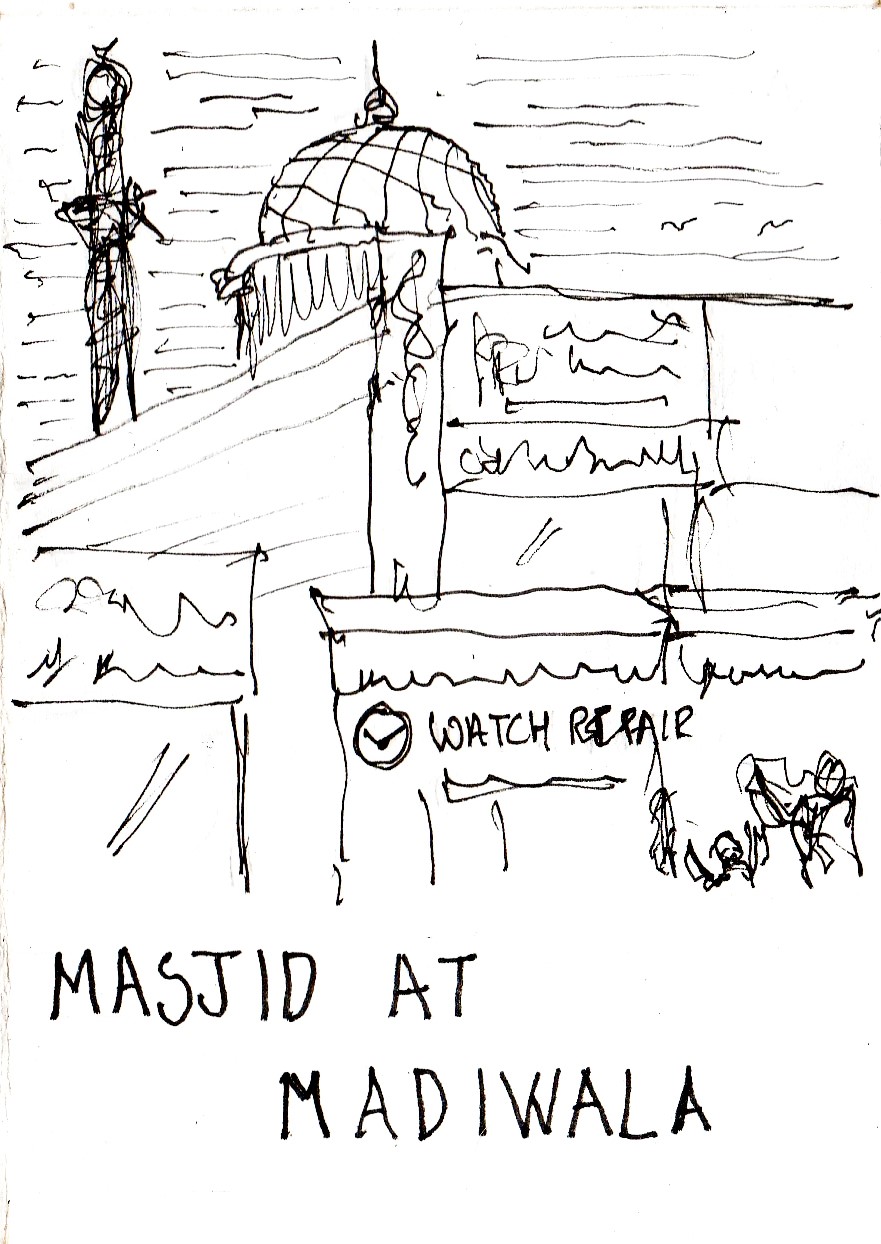 WATCH REPAIR
MASJID AT
MADIWALA